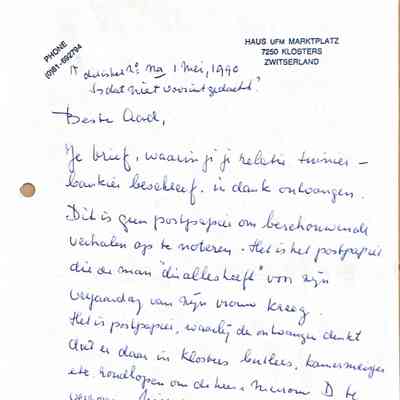 PHONE
(0)81-692794
HAUS UFM MARKTPLATZ
7250 KLOSTERS
ZWITSERLAND
na 1 mei, 1990
Is dat niet vooruitgedacht?
Beste Aad,
Je brief, waarin jij je relatie tuinier –
bankier beschreef, in dank ontvangen.
Dit is geen postpapier om beschouwende
verhalen op te noteren. Het is het postpapier
die de man "die alles heeft" voor zijn
verjaardag van zijn vrouw kreeg.
Het is postpapier, waarbij de ontvanger denkt
dat er daar in Klosters butlers, kamermeisjes
etc. rondlopen om de heer & mevrouw D te